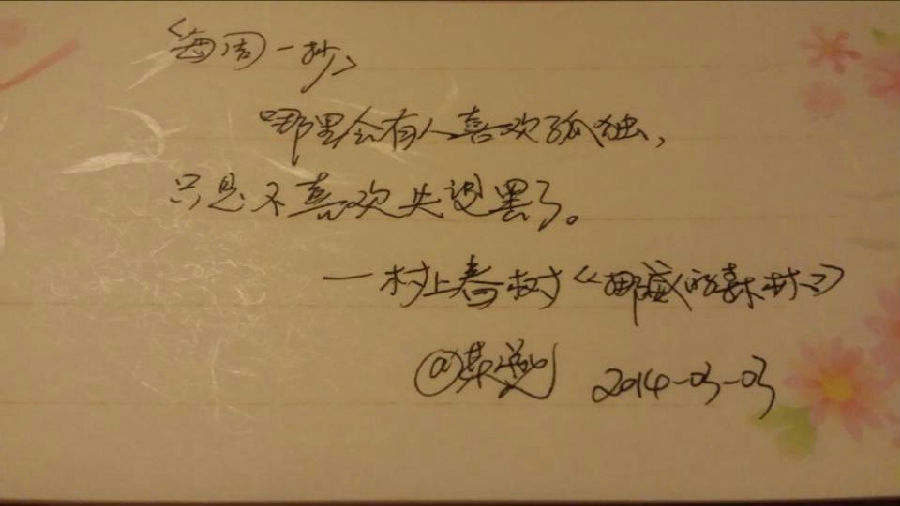 《每周一抄》
哪里会有人喜欢孤独，
只是不喜欢失望罢了。
—村上春树《挪威的森林》
@ 2014-03-03